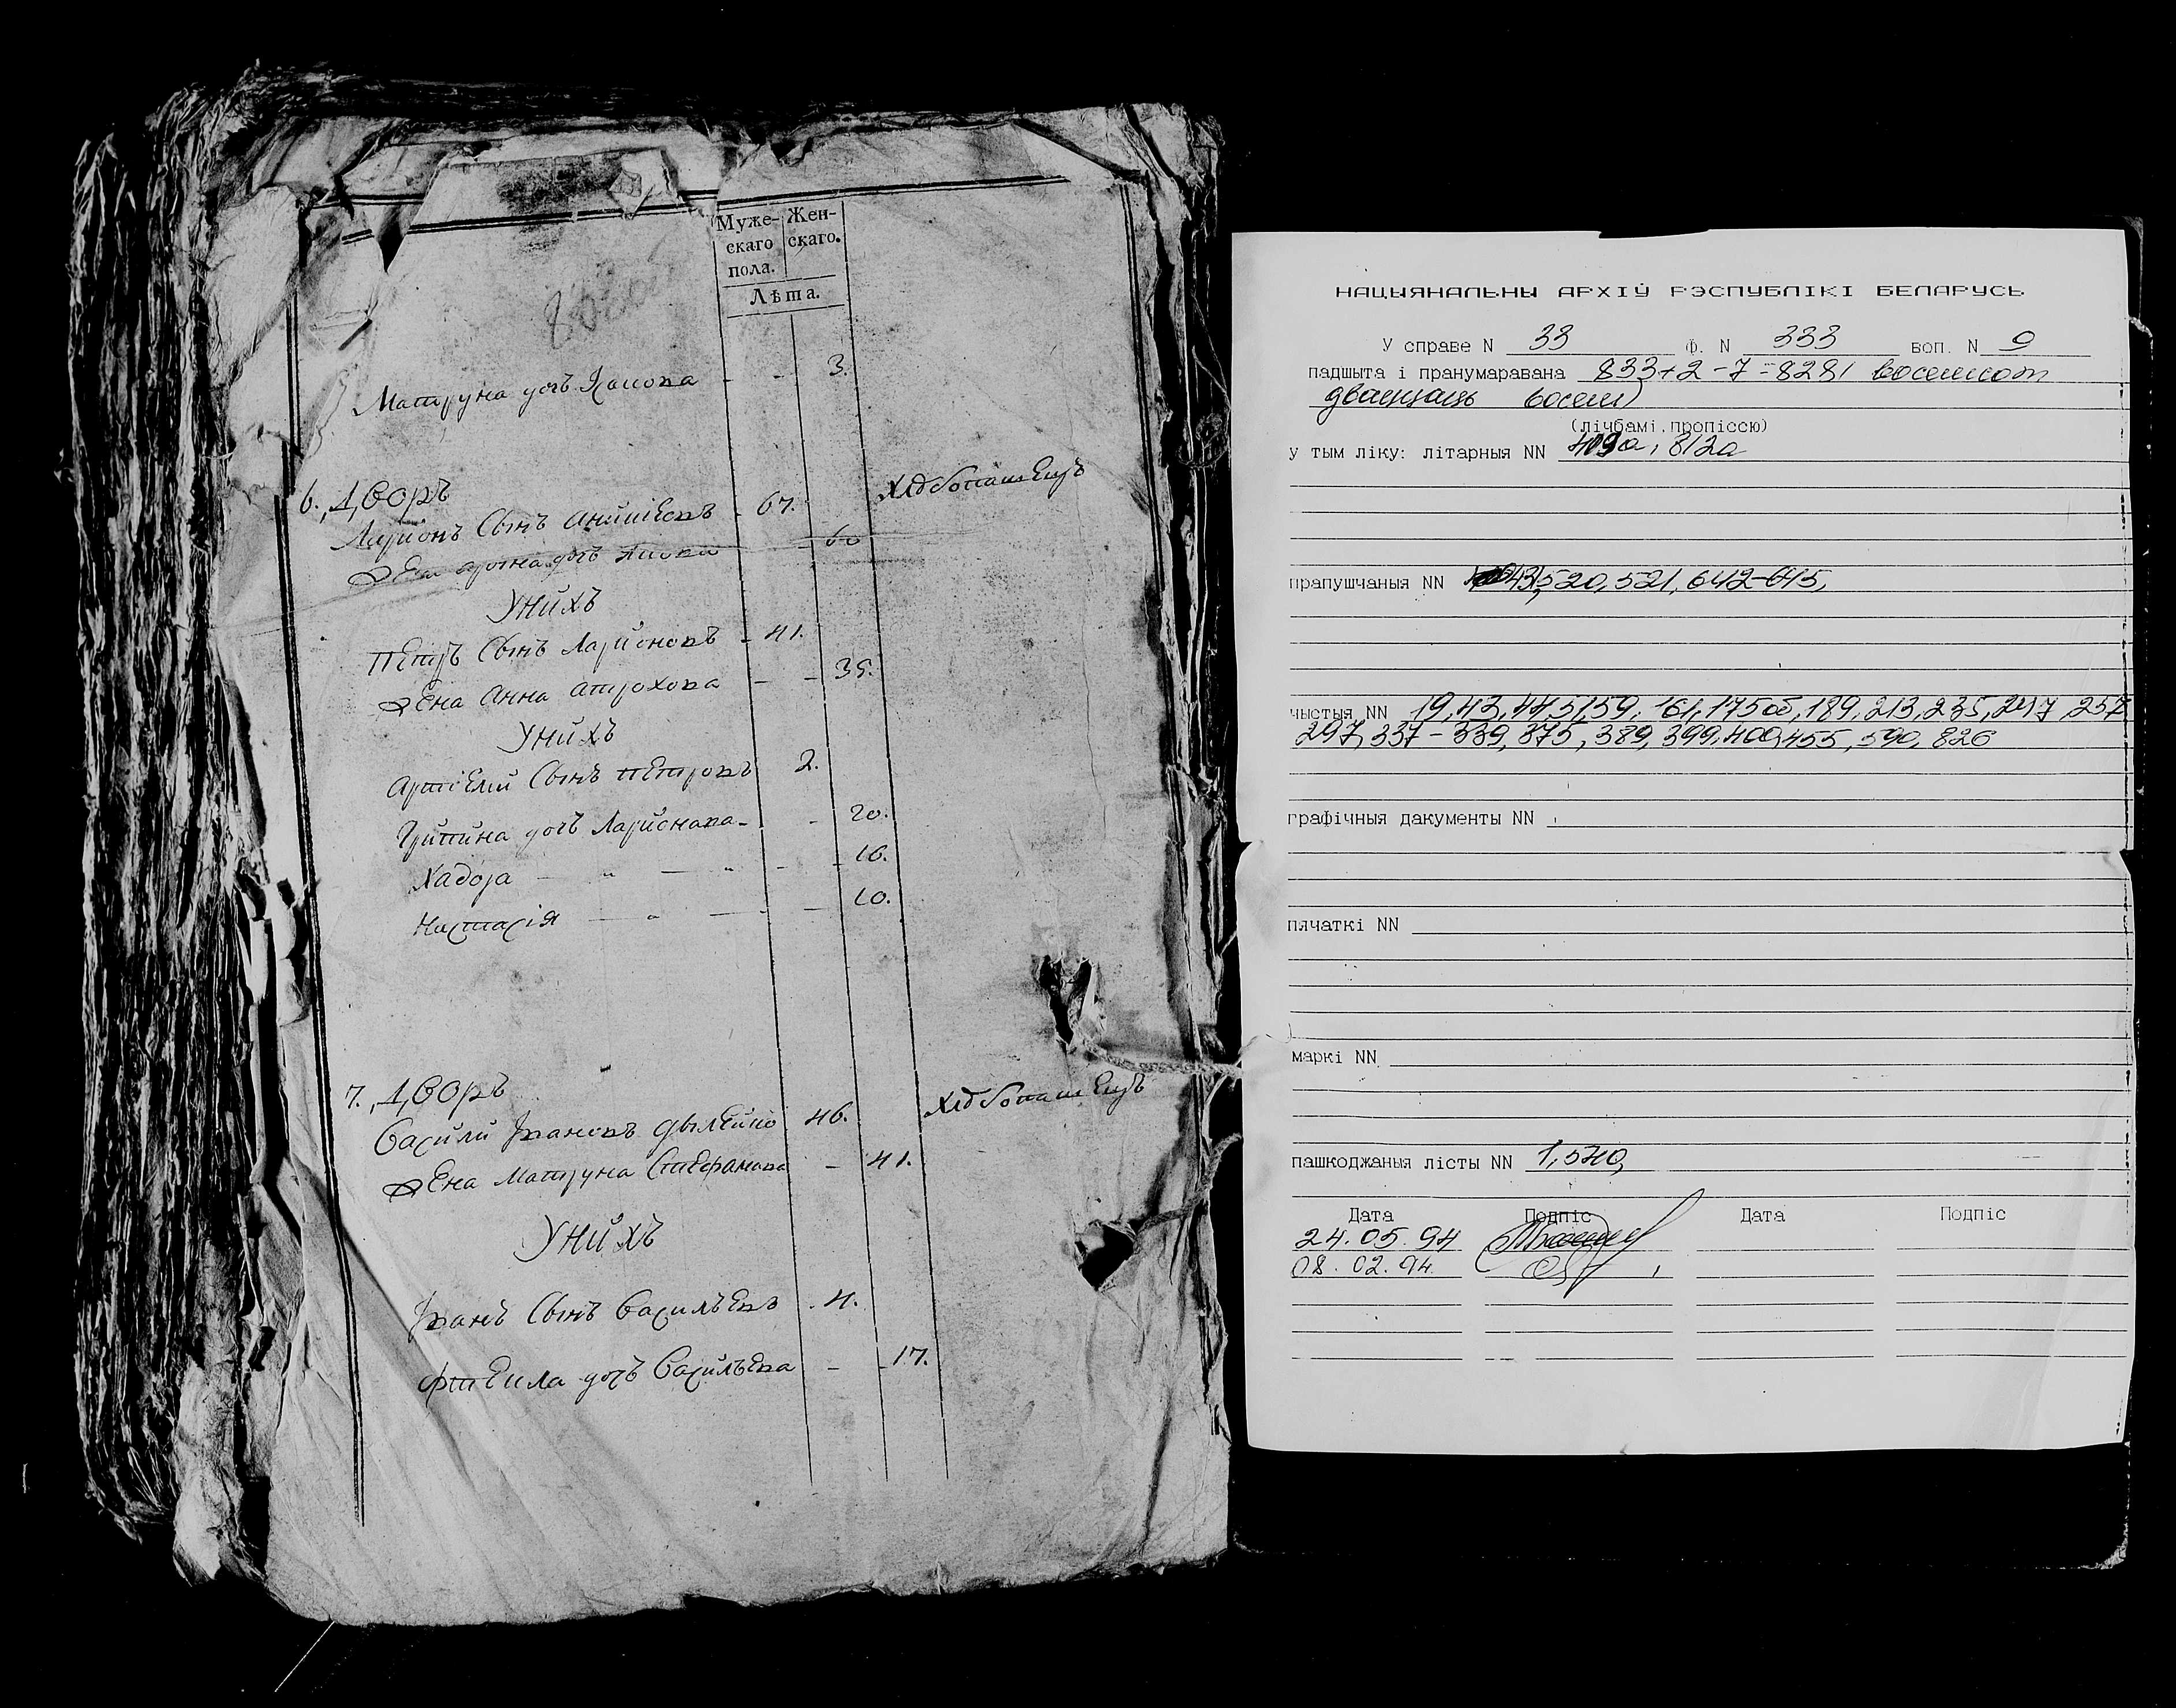 833об
Муже-
скаго
пола.
Жен-
скаго.
Лѣта.
Матруна дочь Иванова - - 3.
6. Дворъ
Ларионъ Сынъ - 67. Хлѣбопашецъ
Жена дочь - 60
У нихъ
Петръ Сынъ Ларионовъ - 41.
Жена Анна Атрохова - - 35.
У нихъ
Артiемй Сынъ Петровъ 2.
Грипина дочь Лариона - - 20.
Хадора - " - " - - 16.
Настасiя - " - - 10.
7. Дворъ
Василй Ивановъ 46. Хлѣбопашецъ
Жена Матруна Стефанова - 41.
У нихъ
Иванъ Сынъ Васильевъ - 4.
дочь Васильева - - 17.
НАЦЫЯНАЛЬНЫ АРХІЎ РЭСПУБЛІКІ БЕЛАРУСЬ
У справе N 33 Ф. N 333 воп. N 9
падшыта і пранумаравана 833+2-7=828/ восемсот
дваццаць восем)
(лічбамі, пропіссю)
у тым ліку: літарныя NN 409а, 812а
прапушчаныя NN 520, 521, 642-645,
чыстыя NN 19, 43, 44, 51, 59, 161, 175об, 189, 213, 235, 247 257
297, 337-339, 375, 389, 399, 400, 455, 590, 826
графічныя дакументы NN
пячаткі NN
маркі NN
пашкоджаныя лісты NN 1, 540,
Дата Подпіс Дата Подпіс
24.05.94
08.02.94.